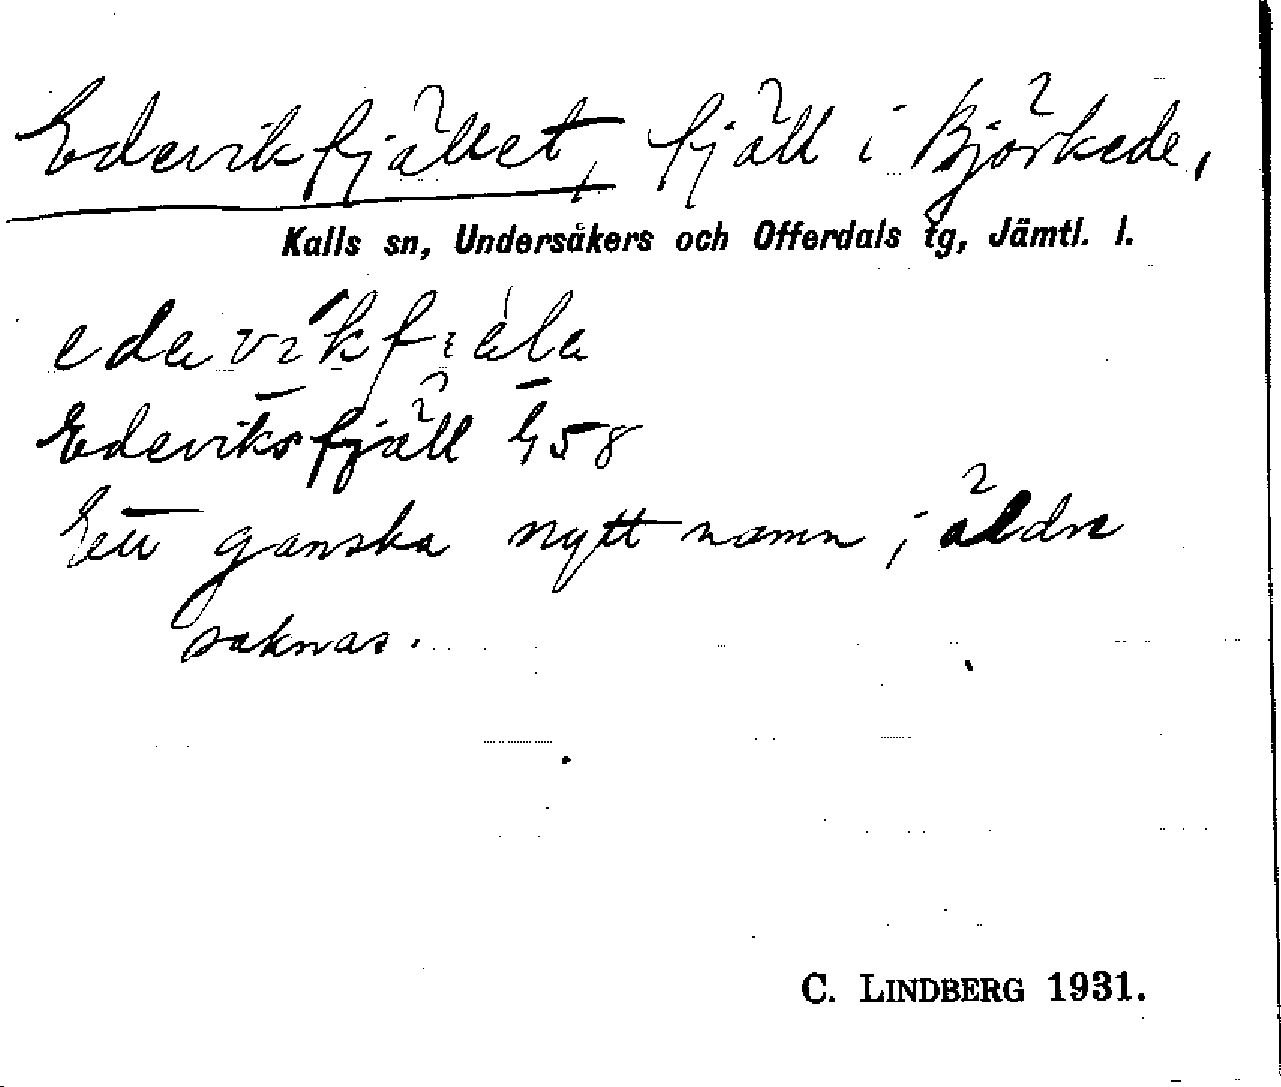 Edevikfjället, fjäll i Björkede,
Kalls sn, Undersåkers och Offerdals tg, Jämtl. l.
Edeviksfjäll G58
Ett ganska nytt namn; äldre
saknas.
C. LINDBERG 1931.